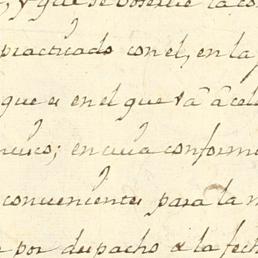 y que se observe la co
practicado con el, en la p
que es en el que va â cele
ncisco; en cuia conformi
convenientes para la m
por despacho de la fech